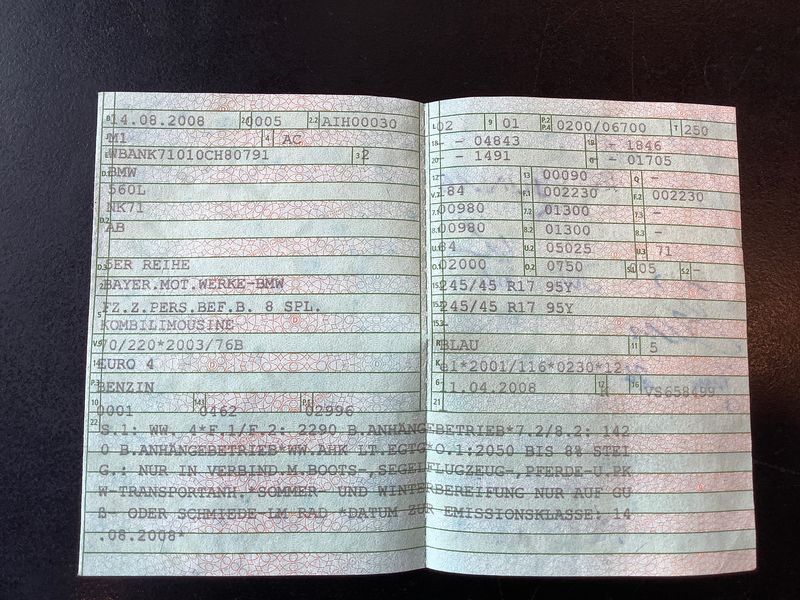 B 14.08.2008 2.1 0005 2.2 AIH00030
J M1 4 AC
WBANK71010CH80791 3 2
D.1 BMW
560L
NK71
D.2 AB
D.3 5ER REIHE
2 BAYER.MOT.WERKE-BMW
FZ.Z.PERS.BEF.B. 8 SPL.
5 KOMBILIMOUSINE
V.9 70/220*2003/76B
14 EURO 4
P.3 BENZIN
10 0001 14.1 0462 P.1 02996
22 S.1: WW. 4*F.1/F.2: 2290 B.ANHÄNGEBETRIEB*7.2/8.2: 142
0 B.ANHÄNGEBETRIEB*WW.AHK LT.EGTG*O.1:2050 BIS 8% STEI
G.: NUR IN VERBIND.M.BOOTS-,SEGELFLUGZEUG-,PFERDE-U.PK
W-TRANSPORTANH.*SOMMER- UND WINTERBEREIFUNG NUR AUF GU
ß- ODER SCHMIEDE-LM RAD *DATUM ZUR EMISSIONSKLASSE: 14
.08.2008*
L 02 9 01 P.2 P.4 0200/06700 T 250
18 - 04843 19 - 1846
20 - 1491 G - 01705
12 - 13 00090 Q -
V.7 184 F.1 002230 F.2 002230
7.1 00980 7.2 01300 7.3 -
8.1 00980 8.2 01300 8.3 -
U.1 84 U.2 05025 U.3 71
O.1 02000 O.2 0750 S.1 05 S.2 -
15.1 245/45 R17 95Y
15.2 245/45 R17 95Y
15.3 -
R BLAU 11 5
K e1*2001/116*0230*12
6 11.04.2008 17 K 16 VS658499
21